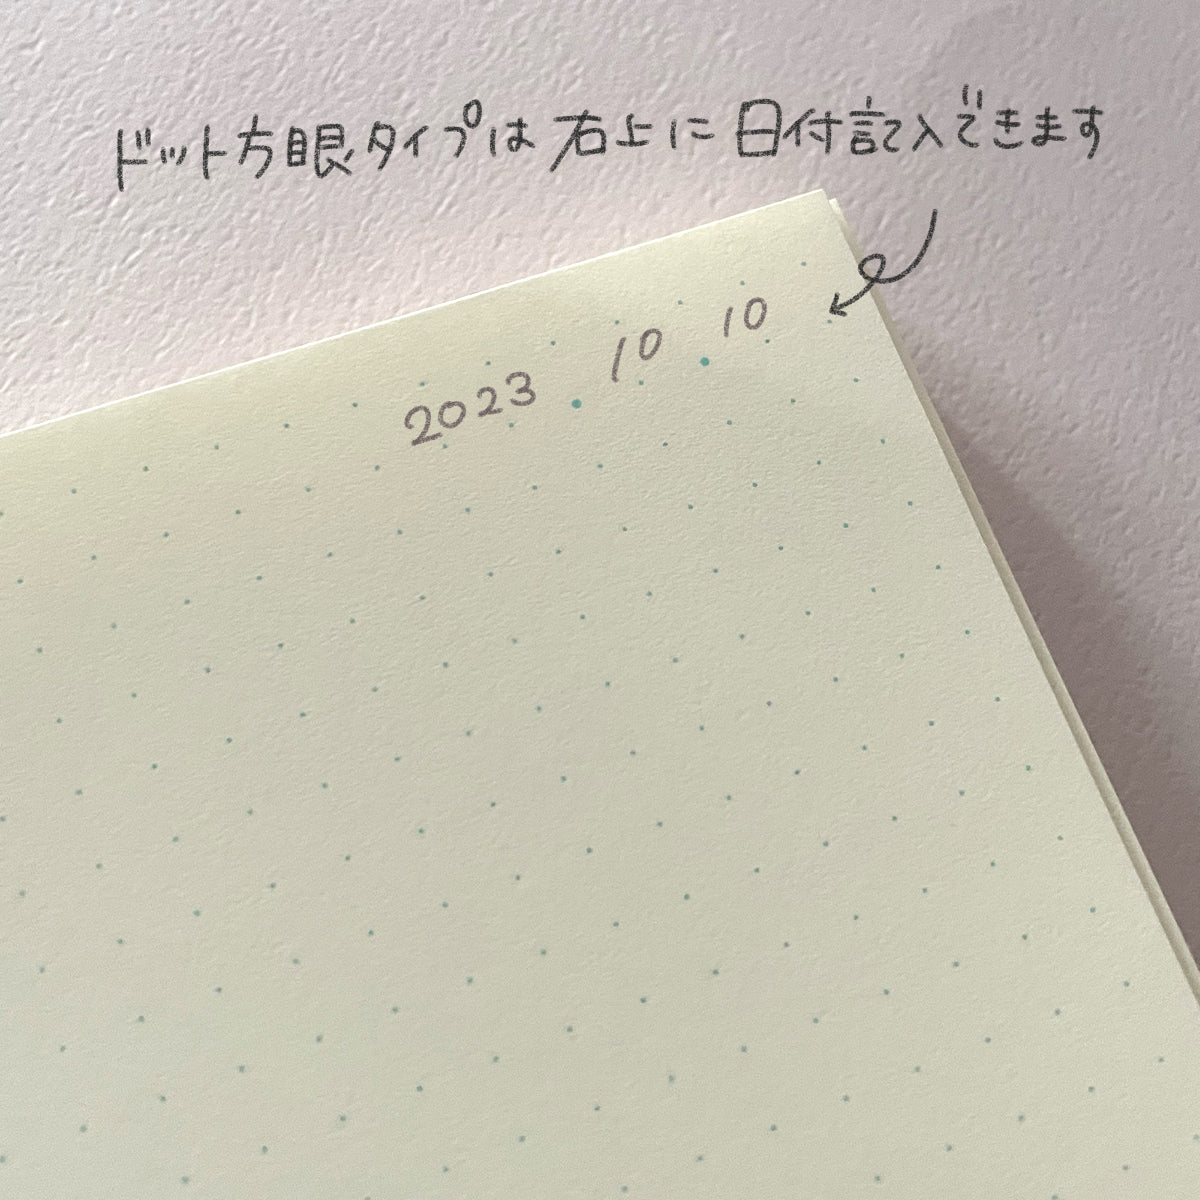 ドット方眼タイプは右上に日付記入できます
2023 . 10 . 10